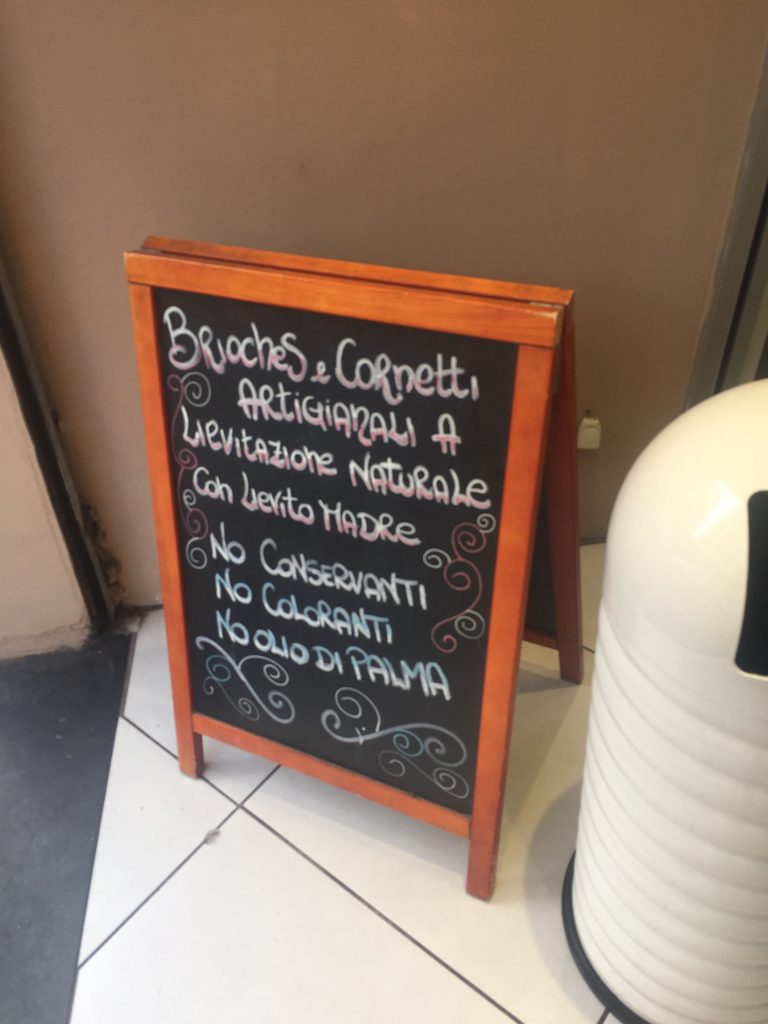 Brioches e Cornetti
Artigianali a
Lievitazione Naturale
con Lievito Madre
No Conservanti
No Coloranti
No olio di Palma